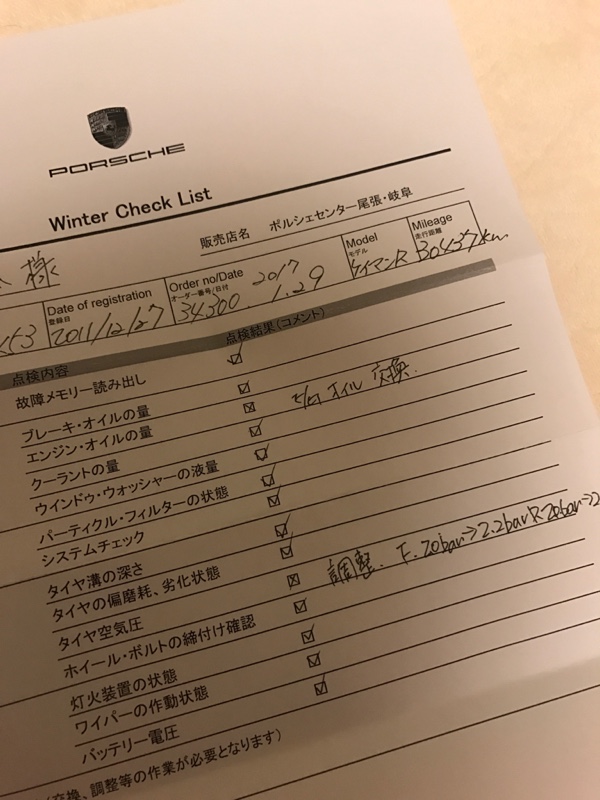 PORSCHE
Winter Check List
販売店名 ポルシェセンター尾張・岐阜
様
Date of registration
登録日
2011/12/27
Order no/Date
オーダー番号/日付
34,300
2017
1.29
Model
モデル
ケイマンR
Mileage
走行距離
30437km
点検内容 点検結果(コメント)
故障メモリー読み出し ☑
ブレーキ・オイルの量 ☑
エンジン・オイルの量 ☒ オイル 交換.
クーラントの量 ☑
ウインドゥ・ウォッシャーの液量 ☑
パーティクル・フィルターの状態 ☑
システムチェック ☑
タイヤ溝の深さ ☑
タイヤの偏磨耗、劣化状態 ☑
タイヤ空気圧 ☒ 調整. F. 2.0bar→2.2bar R 2.0bar→2
ホイール・ボルトの締付け確認 ☑
灯火装置の状態 ☑
ワイパーの作動状態 ☑
バッテリー電圧 ☑
交換、調整等の作業が必要となります)